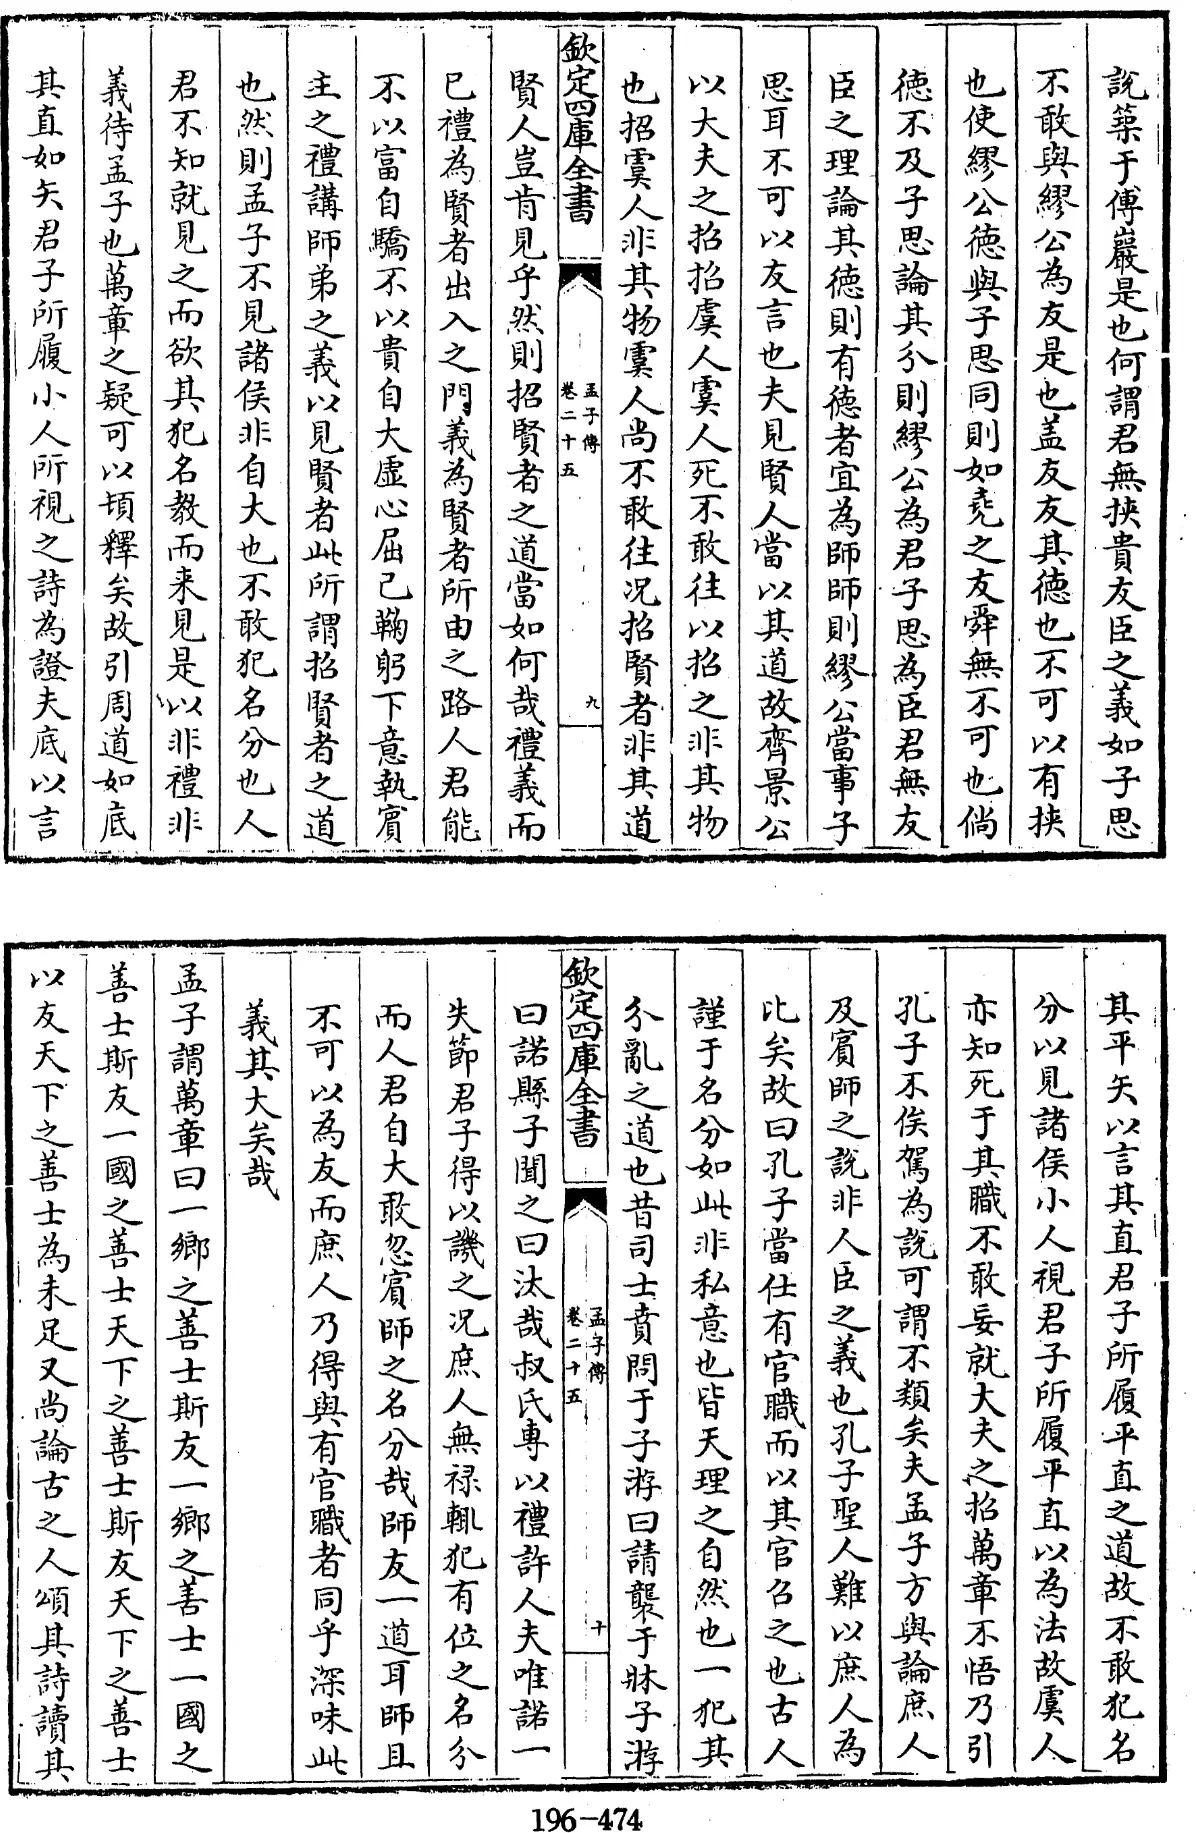 說築于傅巖是也何謂君無挾貴友臣之義如子思
不敢與繆公為友是也盖友友其徳也不可以有挾
也使繆公徳與子思同則如堯之友舜無不可也倘
徳不及子思論其分則繆公為君子思為臣君無友
臣之理論其徳則有徳者宜為師師則繆公當事子
思耳不可以友言也夫見賢人當以其道故齊景公
以大夫之招招虞人虞人死不敢往以招之非其物
也招虞人非其物虞人尚不敢往况招賢者非其道
欽定四庫全書
孟子傳
卷二十五
九
賢人豈肯見乎然則招賢者之道當如何哉禮義而
已禮為賢者出入之門義為賢者所由之路人君能
不以富自驕不以貴自大虚心屈己鞠躬下意執賓
主之禮講師弟之義以見賢者此所謂招賢者之道
也然則孟子不見諸侯非自大也不敢犯名分也人
君不知就見之而欲其犯名教而来見是以非禮非
義待孟子也萬章之疑可以頓釋矣故引周道如底
其直如矢君子所履小人所視之詩為證夫底以言
其平矢以言其直君子所履平直之道故不敢犯名
分以見諸侯小人視君子所履平直以為法故虞人
亦知死于其職不敢妄就大夫之招萬章不悟乃引
孔子不俟駕為説可謂不類矣夫孟子方與論庶人
及賓師之説非人臣之義也孔子聖人難以庶人為
比矣故曰孔子當仕有官職而以其官召之也古人
謹于名分如此非私意也皆天理之自然也一犯其
分亂之道也昔司士賁問于子游曰請襲于牀子游
欽定四庫全書
孟子傳
卷二十五
十
曰諾縣子聞之曰汰哉叔氏專以禮許人夫唯諾一
失節君子得以譏之况庶人無禄輙犯有位之名分
而人君自大敢忽賓師之名分哉師友一道耳師且
不可以為友而庶人乃得與有官職者同乎深味此
義其大矣哉
孟子謂萬章曰一鄉之善士斯友一鄉之善士一國之
善士斯友一國之善士天下之善士斯友天下之善士
以友天下之善士為未足又尚論古之人頌其詩讀其
196-474